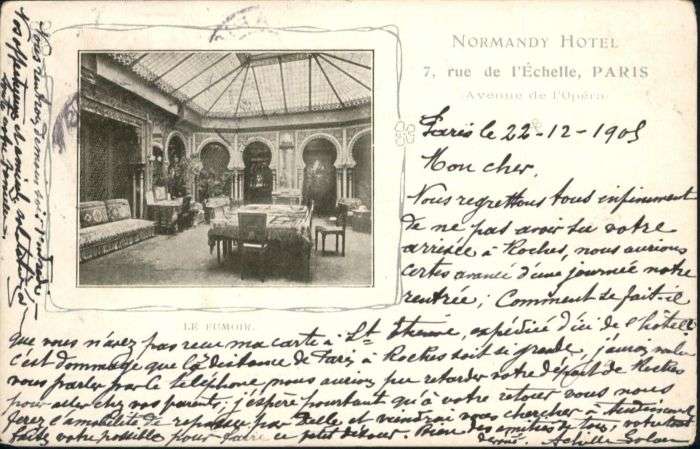 NORMANDY HOTEL
7, rue de l'Échelle, PARIS
(Avenue de l'Opéra)
Paris le 22-12-1905
Mon cher,
Nous regrettons tous infiniment
de ne pas avoir su votre
arrivée à Roches, nous aurions
certes avancé d'une journée notre
rentrée; Comment se fait-il
LE FUMOIR.
que vous n'ayez pas reçu ma carte à St Etienne, expédiée d'ici de l'hôtel
c'est dommage que la distance de Paris à Roches soit si grande, j'aurais voulu
vous parler par le téléphone, nous aurions pu retarder notre départ de Roches
pour aller chez vos parents; j'espère pourtant qu'à votre retour vous nous
ferez l'amabilité de repasser par Delle et viendrai vous chercher à
faites votre possible pour faire ce petit détour. Bien des amitiés de tous, votre tout
dévoué. Achille
Nous rentrons demain soir
Nos et amical
toute votre famille